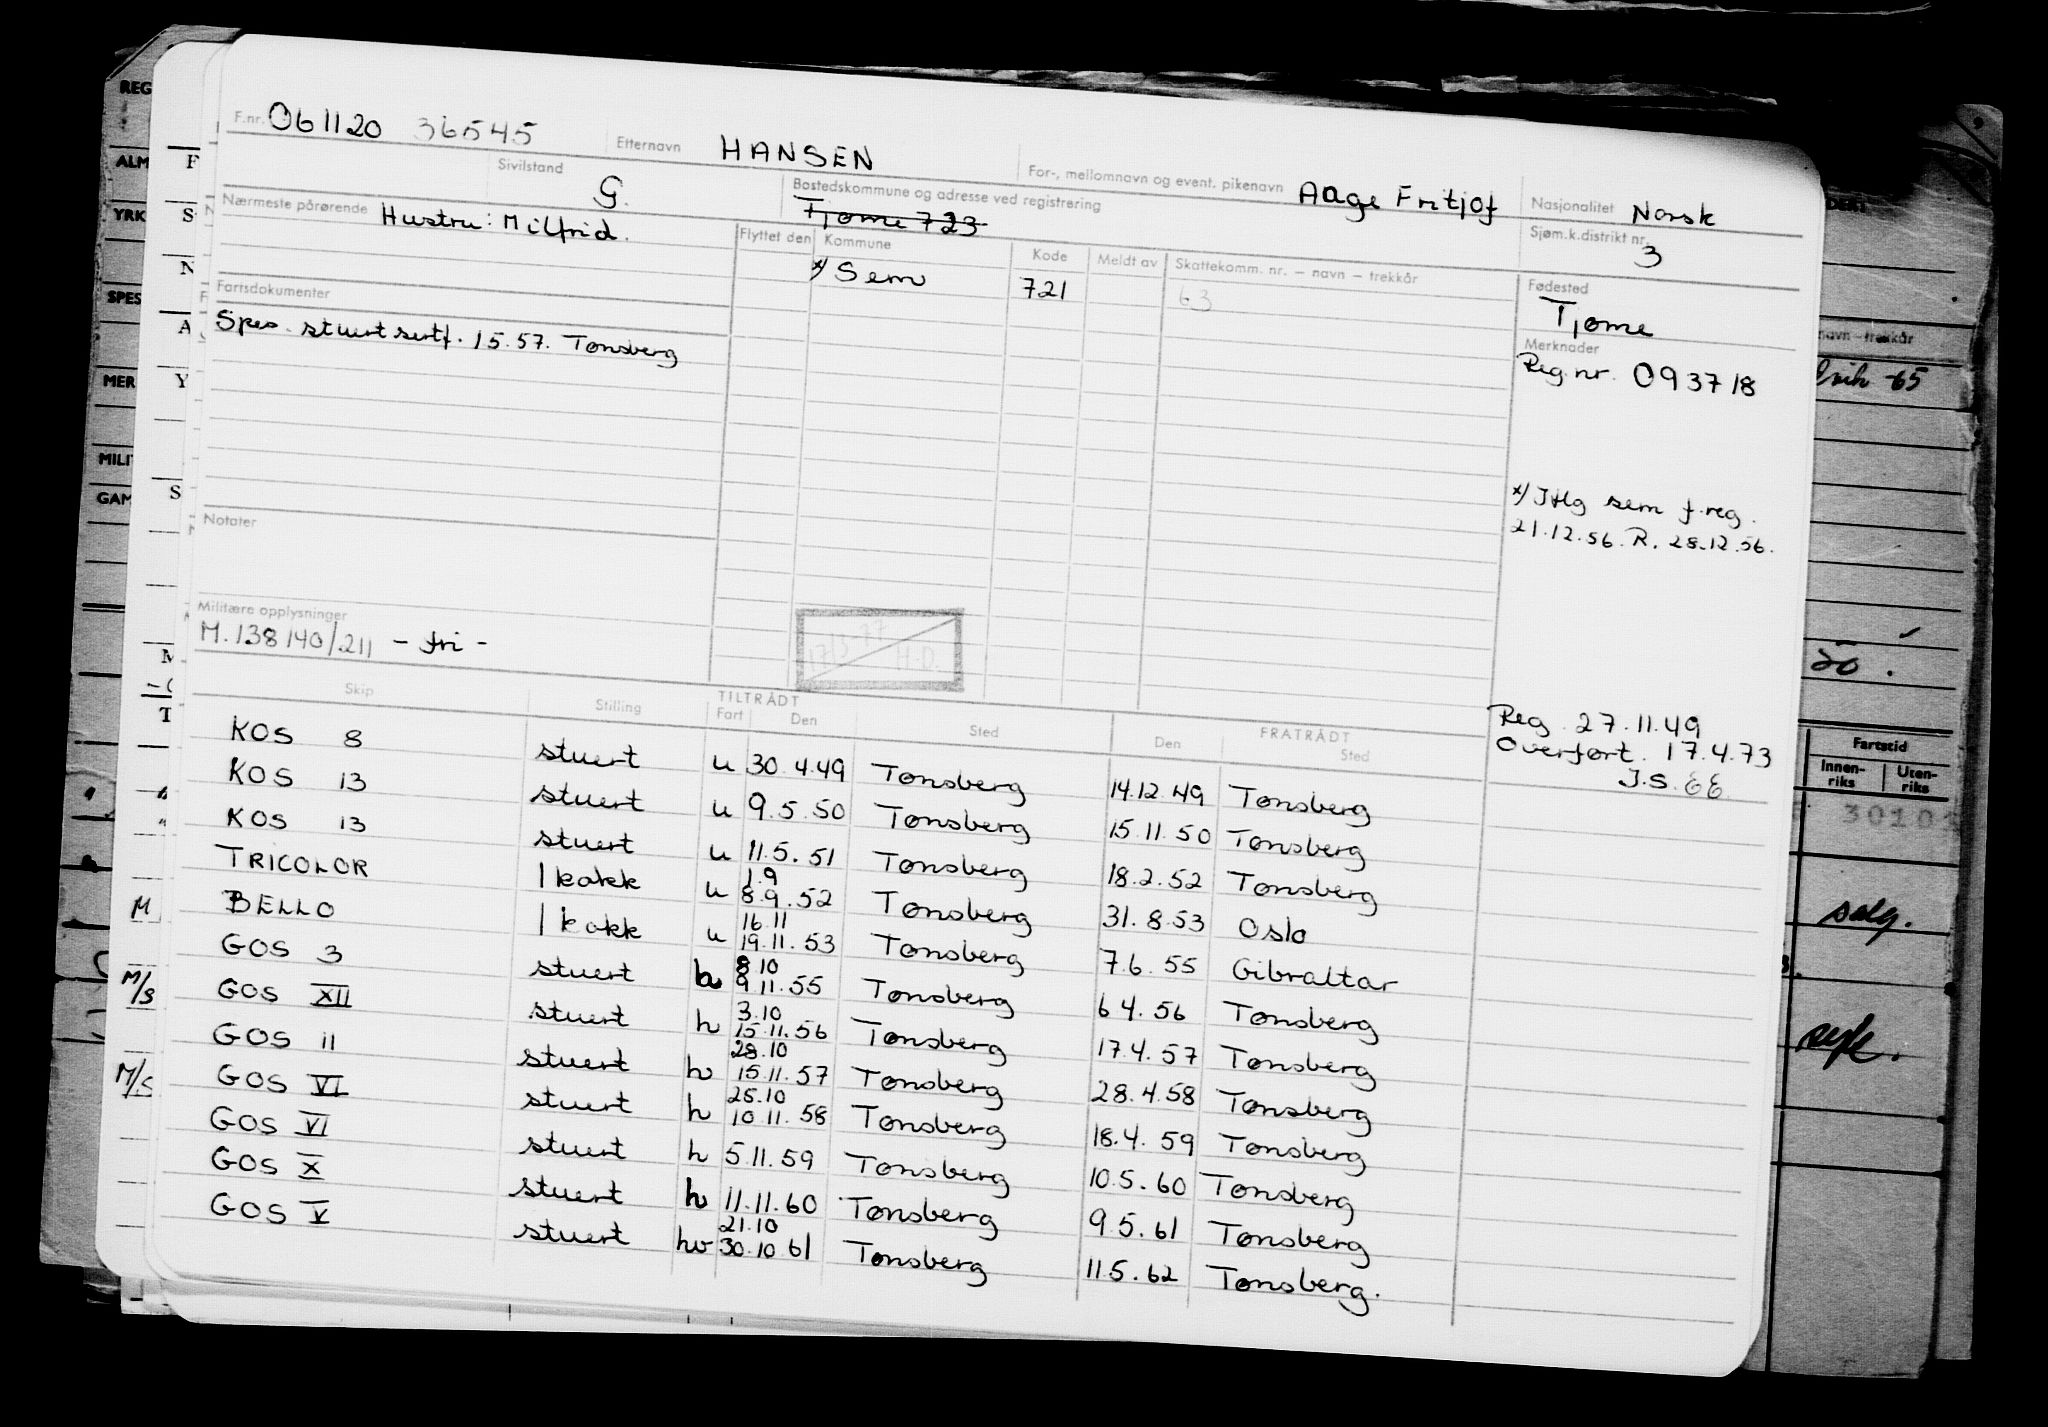 F.nr. 061120 36545 Etternavn HANSEN For-, mellomnavn og event. pikenavn Aage Fritjof Nasjonalitet Norsk
Sivilstand G. Bostedskommune og adresse ved registrering Tjøme 723 Sjøm.k.distrikt nr. 3
Nærmeste pårørende Hustru: Milfrid.
Flyttet den Kommune Kode Meldt av Skattekomm. nr. – navn – trekkår Fødested
x/ Sem 721 63 Tjøme
Fartsdokumenter
Spes. stuertsertf. 15.57. Tønsberg
Merknader
Reg.nr. 093718
x/ Iflg sem f.reg.
21.12.56. R. 28.12.56.
Notater
Militære opplysninger
M.138140/211 – fri –
17/3-77 H.D.
Reg. 27.11.49
Overført. 17.4.73
J.S. EE
Skip Stilling TILTRÅDT Fart Den Sted FRATRÅDT Den Sted
KOS 8 stuert u 30.4.49 Tønsberg 14.12.49 Tønsberg
KOS 13 stuert u 9.5.50 Tønsberg 15.11.50 Tønsberg
KOS 13 stuert u 11.5.51 Tønsberg 18.2.52 Tønsberg
TRICOLOR 1 kokk u 1.9 8.9.52 Tønsberg 31.8.53 Oslo
BELLO 1 kokk u 16.11 19.11.53 Tønsberg 7.6.55 Gibraltar
GOS 3 stuert h 8.10 9.11.55 Tønsberg 6 4.56 Tønsberg
GOS XII stuert h 3.10 15.11.56 Tønsberg 17.4.57 Tønsberg
GOS 11 stuert h 28.10 15.11.57 Tønsberg 28.4.58 Tønsberg
GOS VI stuert h 25.10 10.11.58 Tønsberg 18.4.59 Tønsberg
GOS VI stuert h 5.11.59 Tønsberg 10.5.60 Tønsberg
GOS X stuert h 11.11.60 Tønsberg 9.5.61 Tønsberg
GOS V stuert hv 21.10 30.10.61 Tønsberg 11.5.62 Tønsberg.
REG
ALM
YRK
SPES
MER
MILIT
GAM
F
S
N
A
Y
S
M
T
M
M/S
M/S
navn – trekkår
-65
50.
Fartstid
Innen-riks Uten-riks
3010